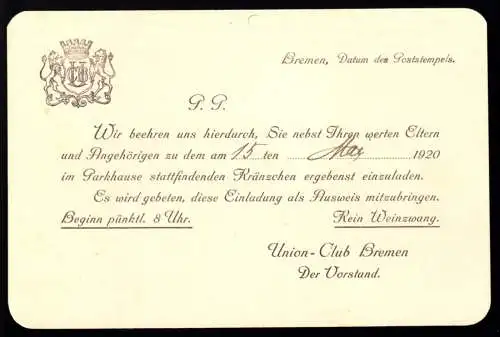 Bremen, Datum des Poststempels.
P. P.
Wir beehren uns hierdurch, Sie nebst Ihren werten Eltern
und Angehörigen zu dem am 15 ten May 1920
im Parkhause stattfindenden Kränzchen ergebenst einzuladen.
Es wird gebeten, diese Einladung als Ausweis mitzubringen.
Beginn pünktl. 8 Uhr. Kein Weinzwang.
Union-Club Bremen
Der Vorstand.